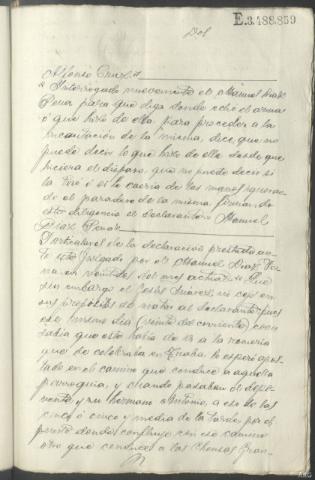 E.3.188.859
Dos
Alfonso Cruz."
"Interrogado nuevamente el Manuel Diaz
Pena para que diga donde echó el arma
ó que hizo de ella para proceder a la
incautación de la misma, dice, que no
puede decir lo que hizo de ella desde que
hiciera el disparo, que no puede decir si
la tiró ó si le caeria de las manos ignoran-
do el paradero de la misma, firmando
esta diligencia el declarante= Manuel
Diaz Pena=
Particulares de la declaracion prestada an-
te este Juzgado por el Manuel Diaz Pe-
na en veintidos del mes actual= "Que
sin embargo el Jesús Suarez, no cejó en
sus propósitos de matar al declarante pues
ese mismo dia (veinte del corriente) como
sabia que este habia de ir a la romeria
que se celebraba en, lo esperó apos-
tado en el camino que conduce a aquella
parroquia, y cuando pasaban el
y su hermano Antonio, a eso de las
cinco ó cinco y media de la tarde, por el
punto donde confluye con ese camino
otro que conduce a las Chousas Gran-